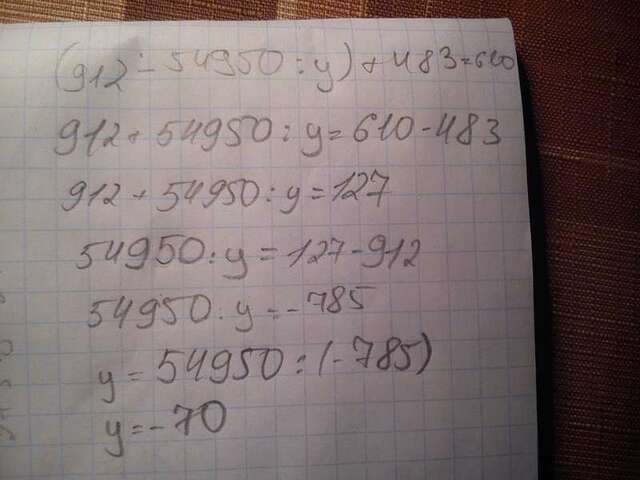 (912 - 54950 : y) + 483 = 610
912 + 54950 : y = 610 - 483
912 + 54950 : y = 127
54950 : y = 127 - 912
54950 : y = - 785
y = 54950 : (-785)
y = - 70